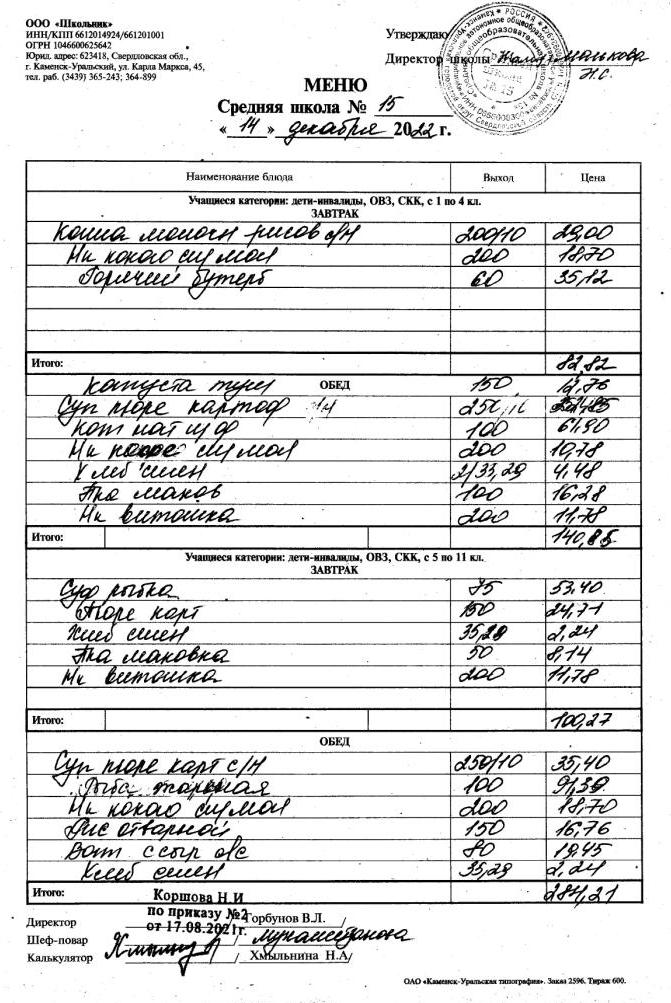 ООО «Школьник»
ИНН/КПП 6612014924/661201001
ОГРН 1046600625642
Юрид. адрес: 623418, Свердловская обл.,
г. Каменск-Уральский, ул. Карла Маркса, 45,
тел. раб. (3439) 365-243; 364-899
Утверждаю
Директор школы
Н.С.
МЕНЮ
Средняя школа № 15
« 14 » декабря 2022 г.
Наименование блюда Выход Цена
Учащиеся категории: дети-инвалиды, ОВЗ, СКК, с 1 по 4 кл.
ЗАВТРАК
Каша молочн рисов с/м 200/10 29,00
Нк какао сгу мол 200 18,70
Горячий бутерб 60 35,12
Итого: 82,82
ОБЕД
Капуста туш 150
Суп пюре картоф
100 61,90
Нк сгу мол 200 10,78
Хлеб смен 2/33,29 4,48
Пка маков 100 16,28
Нк витошка 200 11,78
Итого: 140,85
Учащиеся категории: дети-инвалиды, ОВЗ, СКК, с 5 по 11 кл.
ЗАВТРАК
Суф рыбка 75 53,40
Пюре карт 150 24,71
Хлеб смен 35,29 2,24
Пка маковка 50 8,14
Нк витошка 200 11,78
Итого: 100,27
ОБЕД
Суп пюре карт с/м 250/10 35,40
Рыба 100
Нк какао сгу мол 200 18,70
Рис отварной 150 16,76
Ват с сыр 80 19,45
Хлеб смен 35,29 2,24
Итого: 284,21
Коршова Н.И
по приказу №2
от 17.08.2021г.
Директор Горбунов В.Л. /
Шеф-повар / /
Калькулятор / Хмыльнина Н.А/
ОАО «Каменск-Уральская типография». Заказ 2596. Тираж 600.